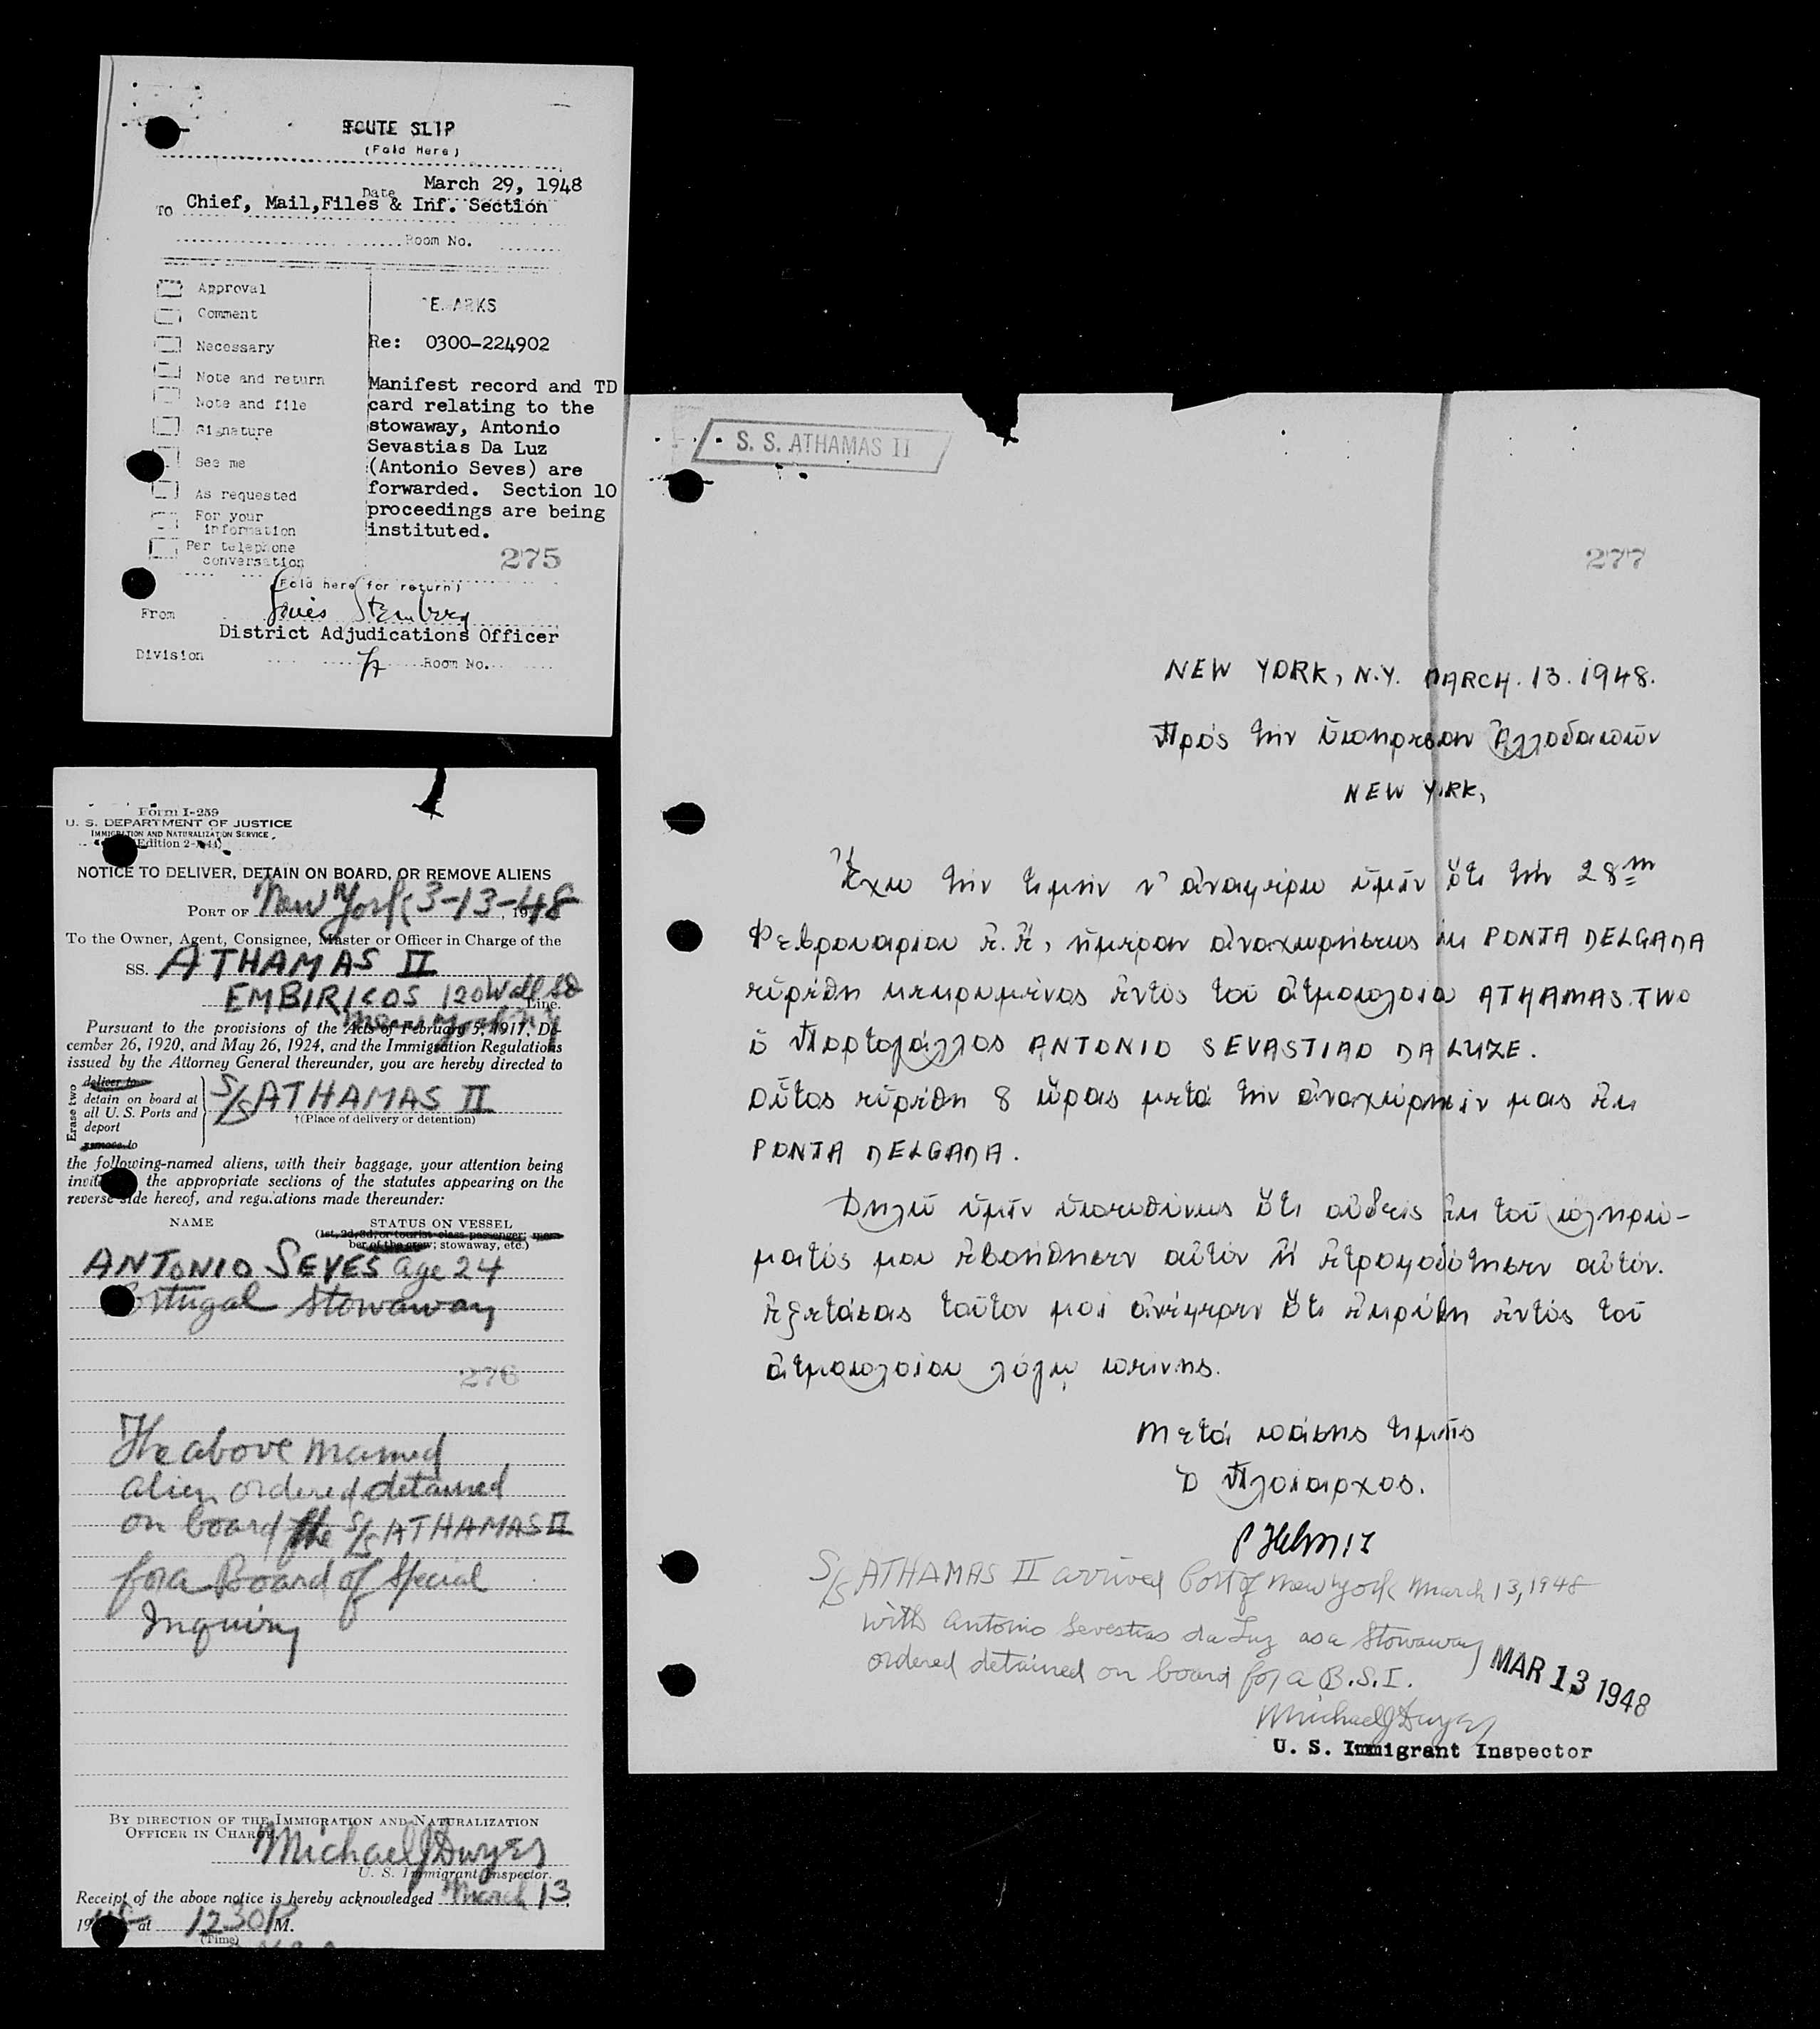 ROUTE SLIP
(Fold Here)
Date March 29, 1948
TO Chief, Mail,Files & Inf. Section
Room No.
Approval
Comment
Necessary
Note and return
Note and file
Signature
See me
As requested
For your
information
Per telephone
conversation
REMARKS
Re: 0300-224902
Manifest record and TD
card relating to the
stowaway, Antonio
Sevastias Da Luz
(Antonio Seves) are
forwarded. Section 10
proceedings are being
instituted.
275
(Fold here for return)
From Louis Stemberg
District Adjudications Officer
Division Room No.
Form I-259
U. S. DEPARTMENT OF JUSTICE
IMMIGRATION AND NATURALIZATION SERVICE
NOTICE TO DELIVER, DETAIN ON BOARD, OR REMOVE ALIENS
PORT OF New York 3-13-48
To the Owner, Agent, Consignee, Master or Officer in Charge of the
SS. ATHAMAS II
EMBIRICOS 120 Wall St Line.
New York N.Y.
Pursuant to the provisions of the Acts of February 5, 1917, De-
cember 26, 1920, and May 26, 1924, and the Immigration Regulations
issued by the Attorney General thereunder, you are hereby directed to
Erase two
deliver to
detain on board at
all U. S. Ports and
deport
remove to
S/S ATHAMAS II
†(Place of delivery or detention)
the following-named aliens, with their baggage, your attention being
invited the appropriate sections of the statutes appearing on the
reverse side hereof, and regulations made thereunder:
NAME STATUS ON VESSEL
(1st, 2d, 3d, or tourist class passenger; mem-
ber of the crew; stowaway, etc.)
ANTONIO SEVES age 24
Portugal Stowaway
276
The above named
alien ordered detained
on board the S/S ATHAMAS II
for a Board of Special
Inquiry
BY DIRECTION OF THE IMMIGRATION AND NATURALIZATION
OFFICER IN CHARGE,
Michael J Dwyer
U. S. Immigrant Inspector.
Receipt of the above notice is hereby acknowledged March 13,
1948 at 1230 P M.
(Time)
S. S. ATHAMAS II
277
NEW YORK, N.Y. MARCH. 13. 1948.
Πρός τήν ὑπηρεσίαν Ἀλλοδαπῶν
NEW YORK,
Ἔχω τήν τιμήν ν' ἀναφέρω ὑμῖν ὅτι τήν 28ην
Φεβρουαρίου ἔ.ἔ, ἡμέραν ἀναχωρήσεως ἐκ PONTA DELGADA
εὑρέθη κεκρυμμένος ἐντός τοῦ ἀτμοπλοίου ATHAMAS. TWO
ὁ Πορτογάλλος ANTONIO SEVASTIAO DA LUZE.
Οὗτος εὑρέθη 8 ὥρας μετά τήν ἀναχώρησίν μας ἐκ
PONTA DELGADA.
Δηλῶ ὑμῖν ὑπευθύνως ὅτι οὐδείς ἐκ τοῦ πληρώ-
ματός μου ἐβοήθησεν αὐτόν ἤ ἐτροφοδότησεν αὐτόν.
Ἐξετάσας τοῦτον μοί ἀνέφερεν ὅτι ἐκρύβη ἐντός τοῦ
ἀτμοπλοίου λόγῳ πείνης.
Μετά πάσης τιμῆς
Ὁ Πλοίαρχος.
S/S ATHAMAS II arrived Port of New York March 13, 1948
with Antonio Sevestias da Luz as a Stowaway
ordered detained on board for a B.S.I.
MAR 13 1948
Michael J Dwyer
U. S. Immigrant Inspector